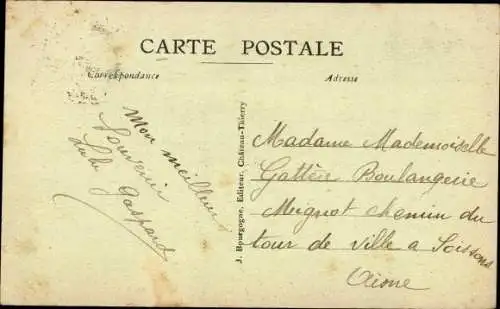 CARTE POSTALE
Correspondance
Adresse
Mon meilleur
souvenir
Gaspard
J. Bourgogne, Editeur, Château-Thierry
Madame Mademoiselle
Gattère Boulangerie
Meignot chemin du
tour de ville a Soissons
Aisne